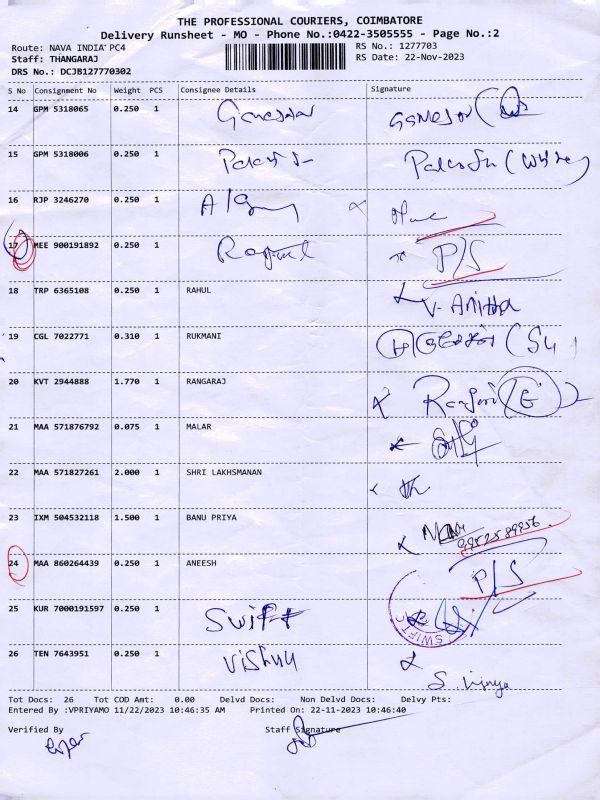 THE PROFESSIONAL COURIERS, COIMBATORE
Delivery Runsheet - MO - Phone No.:0422-3505555 - Page No.:2
Route: NAVA INDIA PC4 RS No.: 1277703
Staff: THANGARAJ RS Date: 22-Nov-2023
DRS No.: DCJB127770302
S No Consignment No Weight PCS Consignee Details Signature
14 GPM 5318065 0.250 1 Ganeshan
15 GPM 5318006 0.250 1
16 RJP 3246270 0.250 1
17 MEE 900191892 0.250 1 P/S
18 TRP 6365108 0.250 1 RAHUL V. Anitha
19 CGL 7022771 0.310 1 RUKMANI
20 KVT 2944888 1.770 1 RANGARAJ
21 MAA 571876792 0.075 1 MALAR
22 MAA 571827261 2.000 1 SHRI LAKHSMANAN
23 IXM 504532118 1.500 1 BANU PRIYA
24 MAA 860264439 0.250 1 ANEESH P/S
25 KUR 7000191597 0.250 1 Swift SWIFT
26 TEN 7643951 0.250 1 Vishnu
Tot Docs: 26 Tot COD Amt: 0.00 Delvd Docs: Non Delvd Docs: Delvy Pts:
Entered By :VPRIYAMO 11/22/2023 10:46:35 AM Printed On: 22-11-2023 10:46:40
Verified By Staff Signature